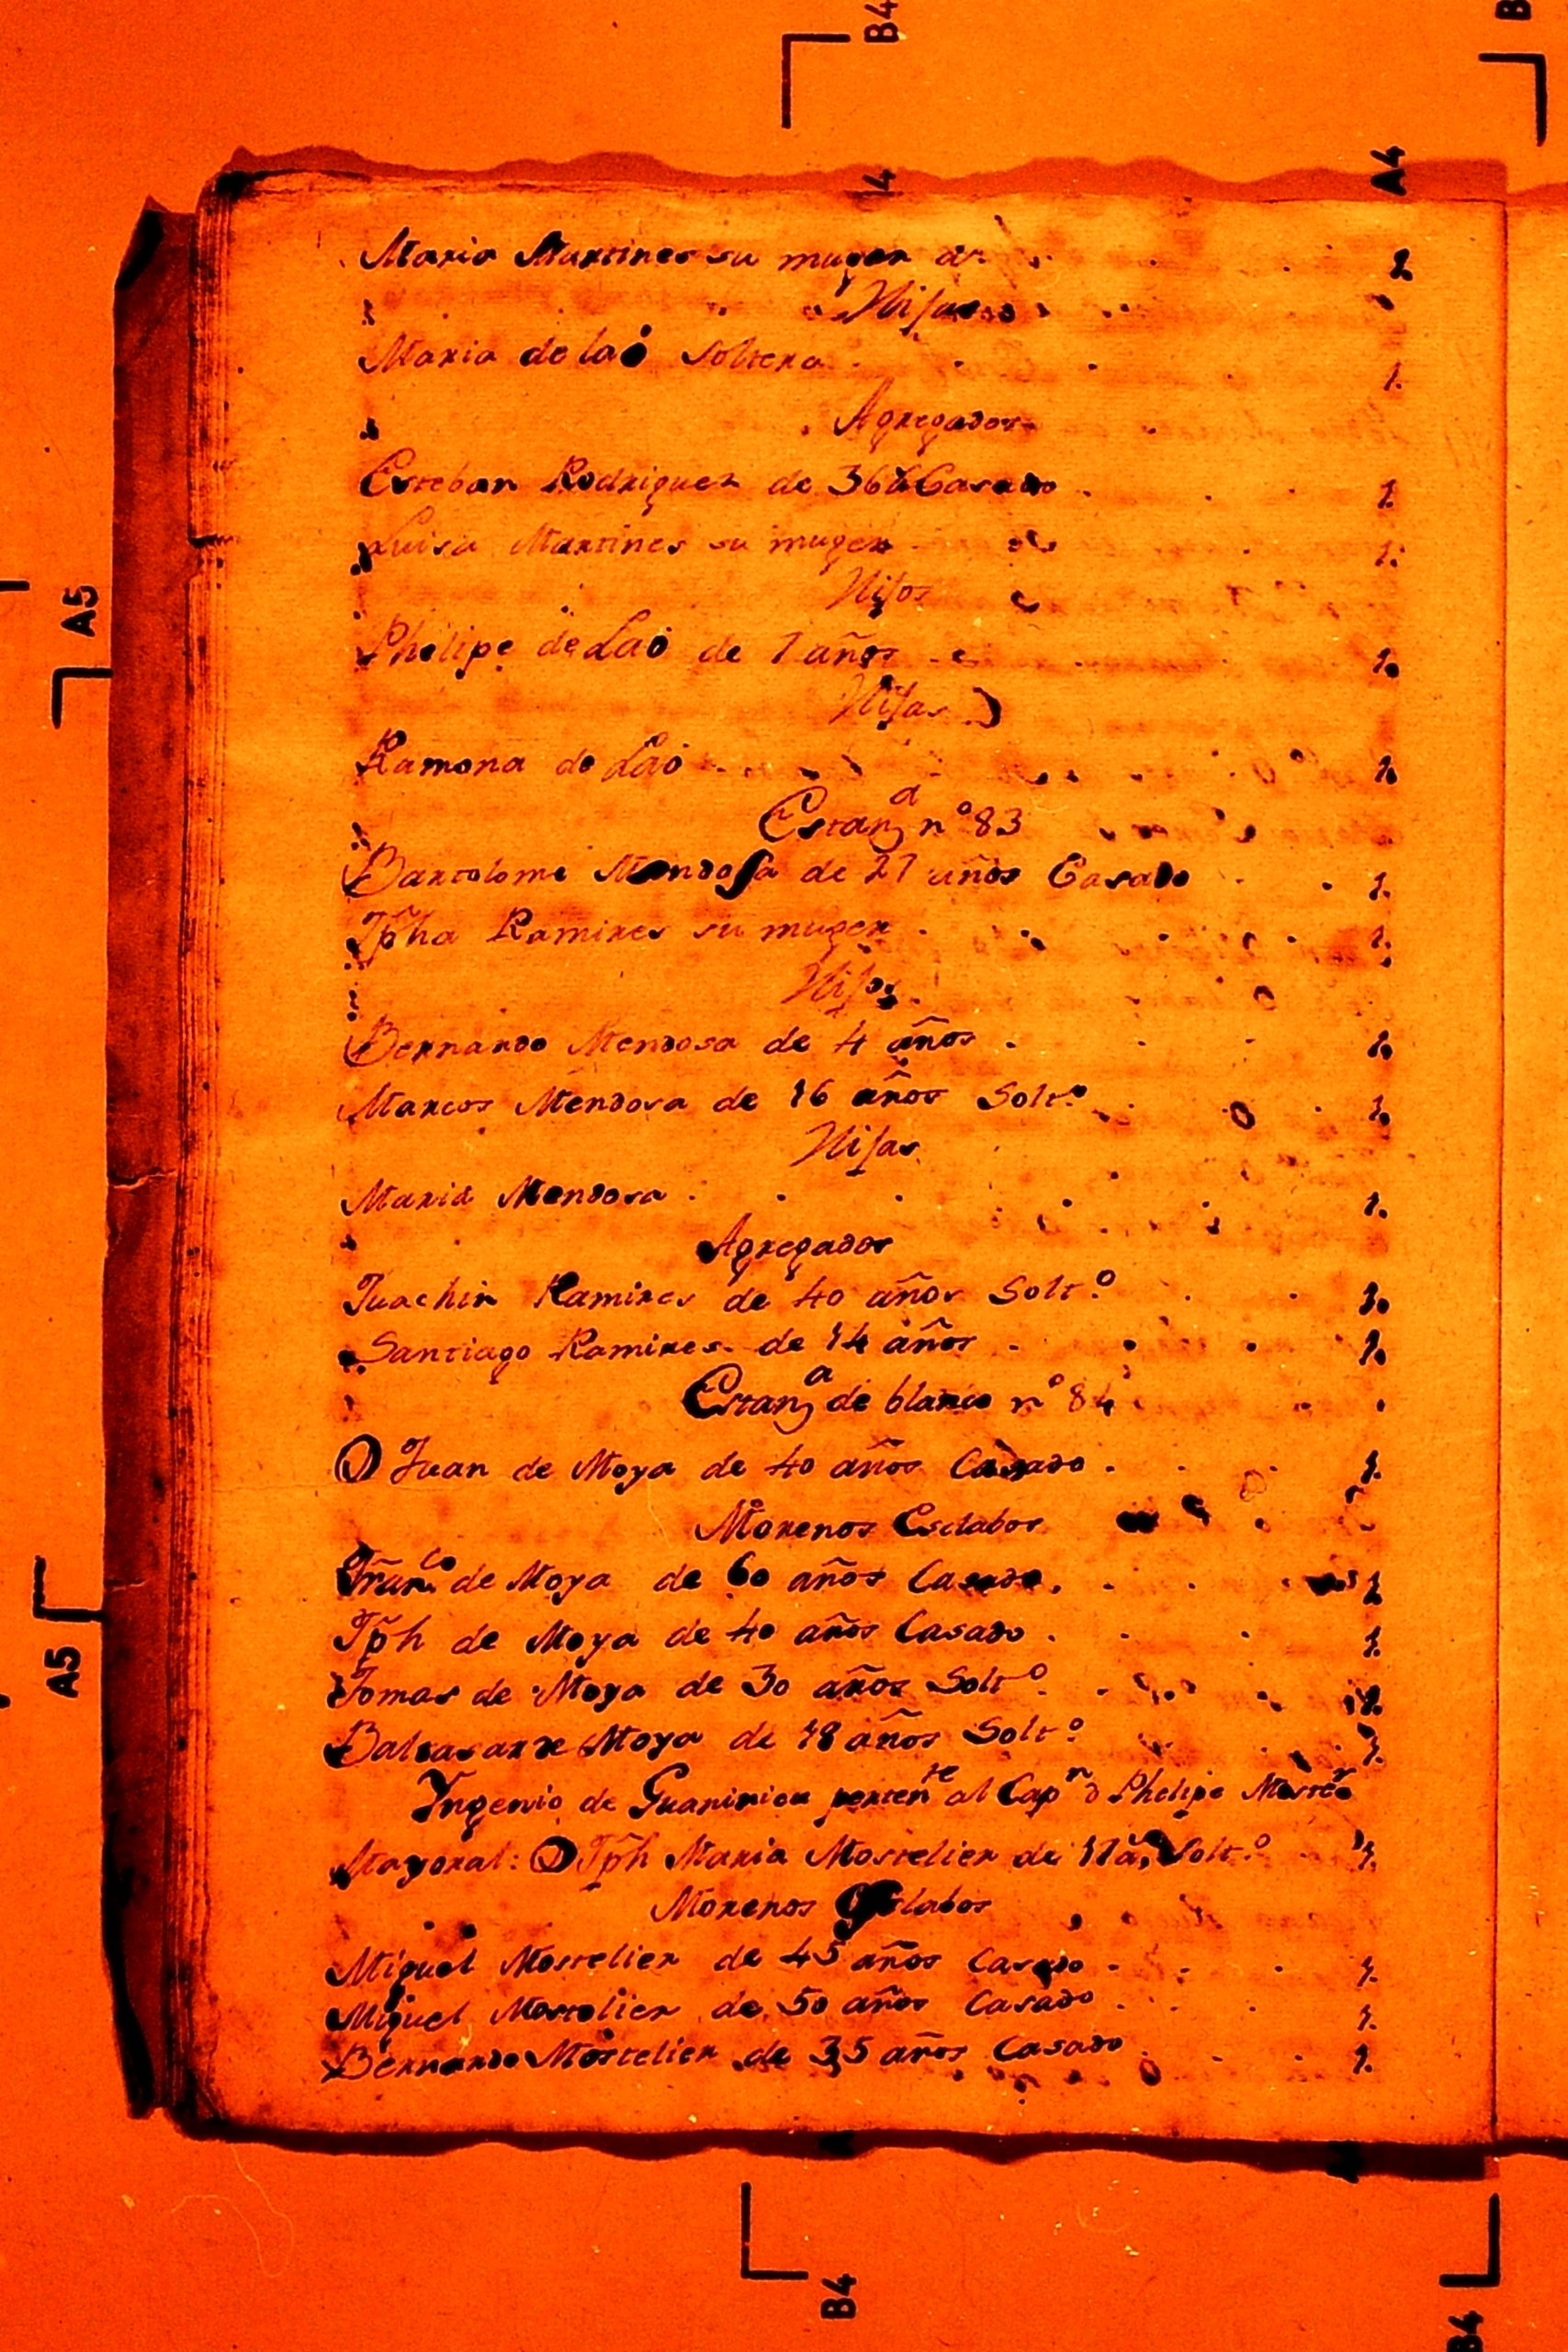 B4
B
A4
4
Maria Martines su muger 1.
Hijas
Maria de la ó soltera 1.
Agregados
Esteban Rodriguez de 36 Casado 1.
Luisa Martines su muger 1.
Hijos
Phelipe de Laó de 7 años 1.
Hijas
Ramona de Laó 1.
Estanª nº 83
Bartolome Mendosa de 27 años Casado 1.
Jpha Ramires su muger 1.
Hijos
Bernardo Mendosa de 4 años 1.
Marcos Mendosa de 16 años Soltº 1.
Hijas
Maria Mendosa 1.
Agregados
Juachin Ramires de 40 años Soltº 1.
Santiago Ramires de 14 años 1.
Estanª de blanco nº 84
D Juan de Moya de 40 años Casado 1.
Morenos Esclabos
Franco de Moya de 60 años Casado 1
Jph de Moya de 40 años Casado 1.
Tomas de Moya de 30 años Soltº 1.
Baltasar de Moya de 18 años Soltº 1.
Yngenio de pertente al Capn d Phelipe
Mayoral: D Jph Maria Mostelier de 17 a, Soltº 1.
Morenos Esclabos
Miguel Mostelier de 45 años Casado 1.
Miguel Mostelier de 50 años Casado 1.
Bernardo Mostelier de 35 años Casado 1.
A5
A5
B4
B4